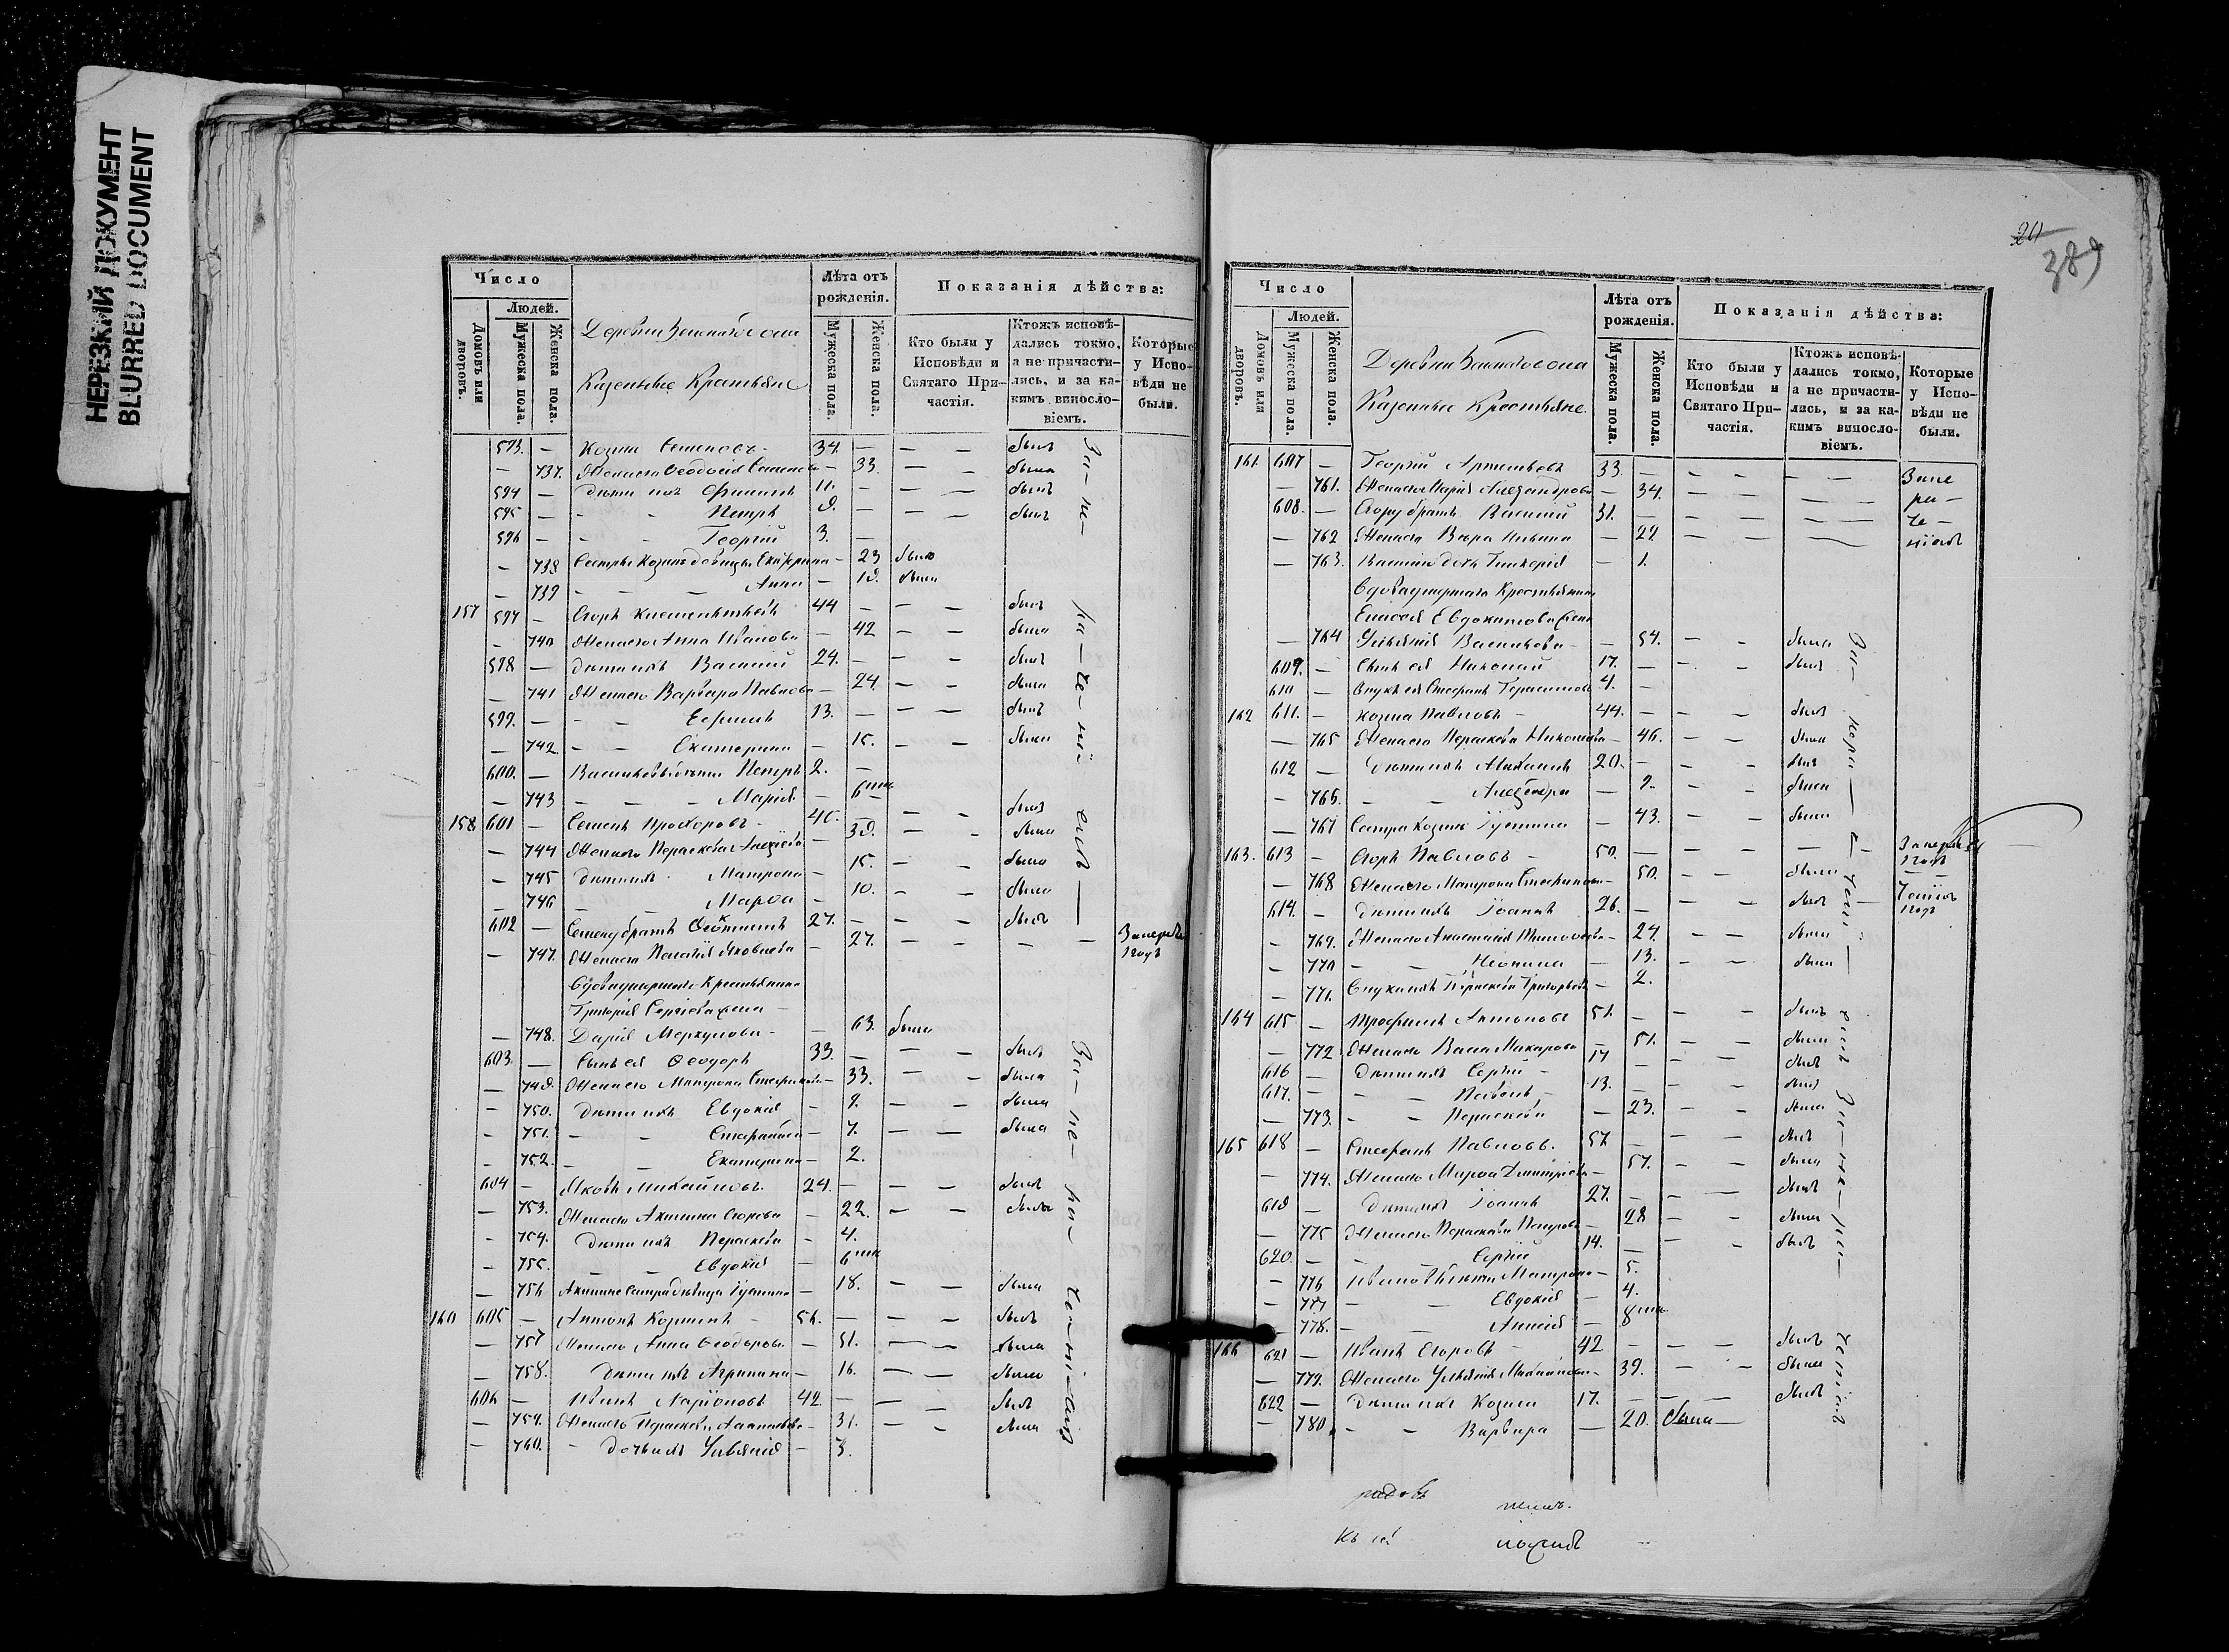 НЕРЕЗКИЙ ДОКУМЕНТ
BLURRED DOCUMENT
Число
Людей.
Домовъ или дворовъ.
Мужеска пола.
Женска пола.
Деревни
Казенные Крестьяне
Лѣта отъ рожденія.
Мужеска пола.
Женска пола.
Показанія дѣйства:
Кто были у Исповѣди и Святаго Причастія.
Ктожъ исповѣдались токмо, а не причастились, и за какимъ винословіемъ.
Которые у Исповѣди не были.
593. — Козма Семеновъ 34. — — — былъ
— 737. Жена его Ѳеодосія Семенова — 33. — — была
594 — Дѣти ихъ Филиппъ 11. — — — былъ
595 — — — Петръ 9. — — — былъ
596 — — — Георгій 3. —
— 738 Сестры Козмы девицы Екатерина — 23 была
— 739 — — — Анна — 19. была
157 597 — Егоръ Климентьевъ 44 — — — былъ
— 740 Жена его Анна Иванова — 42 — — была
598 — Дѣти ихъ Василій 24. — — — былъ
— 741 Жена его Варвара Павлова — 24. — — была
599. — — — Ефимъ 13. — — — былъ
— 742. — — Екатерина — 15. — — была
600. — Васильевы дѣти Петръ 2. —
— 743 — — — Марія — 6 мц
158 601 — Семенъ Прохоровъ 40. — — — былъ
— 744 Жена его Параскева Андреева — 39. — — была
— 745 Дѣти ихъ Матрона — 15. — — была
— 746 — — Марѳа — 10. — — была
602 — Семену братъ Ѳеоктистъ 27. — — — былъ
— 747. Жена его Пелагія Яковлева — 27. — — — За первый годъ
Вдова умершаго Крестьянина
Григорія Сергѣева жена
— 748. Дарія Меркулова — 63. была
603. — Сынъ ея Ѳеодоръ 33. — — — былъ
— 749. Жена его Матрона Стефанова — 33. — — была
— 750. Дѣти ихъ Евдокія — 9. — — была
— 751. — — Стефанида — 7. — — была
— 752. — — Екатерина — 2.
604 — Яковъ Михайловъ 24. — — — былъ
— 753. Жена его Акилина Егорова — 22. — — была
— 754. Дѣти ихъ Параскева — 4.
— 755. — — Евдокія — 6 мц
— 756 Акилине сестра девица Іустина — 18. — — была
160 605 — Антонъ Козминъ 56. — — — былъ
— 757 Жена его Анна Ѳеодорова — 51. — — была
— 758. Дѣти ихъ Агрипина — 16. — — была
606 — Иванъ Ларіоновъ 42. — — — былъ
— 759. Жена его Параскева — 31. — — была
— 760. — Дочь ихъ Ульянія — 3.
За-не-ра-че-ні-емъ
За-не-ра-че-ні-емъ
20
389
Число
Людей.
Домовъ или дворовъ.
Мужеска пола.
Женска пола.
Деревни
Казенные Крестьяне.
Лѣта отъ рожденія.
Мужеска пола.
Женска пола.
Показанія дѣйства:
Кто были у Исповѣди и Святаго Причастія.
Ктожъ исповѣдались токмо, а не причастились, и за какимъ винословіемъ.
Которые у Исповѣди не были.
161. 607 — Георгій Артемьевъ 33. — — — — За не
— 761. Жена его Марія Александрова — 34. — — — ра-
608. — Егору братъ Василій 31. — — — — че-
— 762 Жена его Вѣра Ильина — 29 — — — ніемъ
— 763. Василія дочь Гликерія — 1.
Вдова умершаго Крестьянина
Елисея Евдокимова жена
— 764 Ульянія Васильева — 54. — — была
609. — Сынъ ея Николай 17. — — — былъ
610 — Внукъ ея Стефанъ Герасимовъ 4. —
162 611. — Козма Павловъ 44. — — — былъ
— 765 Жена его Параскева Николаева — 46. — — была
612 — Дѣти ихъ Михаилъ 20. — — — былъ
— 766. — — Александра — 9. — — была
— 767 Сестра Козмы Іустина — 43. — — была
163. 613 — Егоръ Павловъ 50. — — — — За первый годъ
— 768 Жена его Матрона Стефанова — 50. — — была
614. — Дѣти ихъ Іоаннъ 26. — — — былъ
— 769. Жена его Анастасія — 24. — — была
— 770 — — Неонила — 13. — — была
— 771. Внука ихъ Параскева Григорьева — 2.
164 615 — Трофимъ Антоновъ 51. — — — былъ
— 772 Жена его Васса Макарова — 51. — — была
616 — Дѣти ихъ Сергій 17 — — — былъ
617. — — — Павелъ 13. — — — былъ
— 773. — — Параскева — 23. — — была
165 618 — Стефанъ Павловъ. 57. — — — былъ
— 774. Жена его Марѳа Димитріева — 57. — — была
619 — Дѣти ихъ Іоаннъ 27. — — — былъ
— 775 Жена его Параскева Петрова — 28 — — была
620. — — — Сергій 14. — — — былъ
— 776 Ивановы дѣти Матрона — 5.
— 777 — — Евдокія — 4.
— 778. — — Анисія — 8 мц
166 621 — Иванъ Егоровъ 42 — — — былъ
— 779. Жена его Ульянія Михайлова — 39. — — была
622 — Дѣти ихъ Козма 17. — — — былъ
— 780. — — Варвара — 20. была —